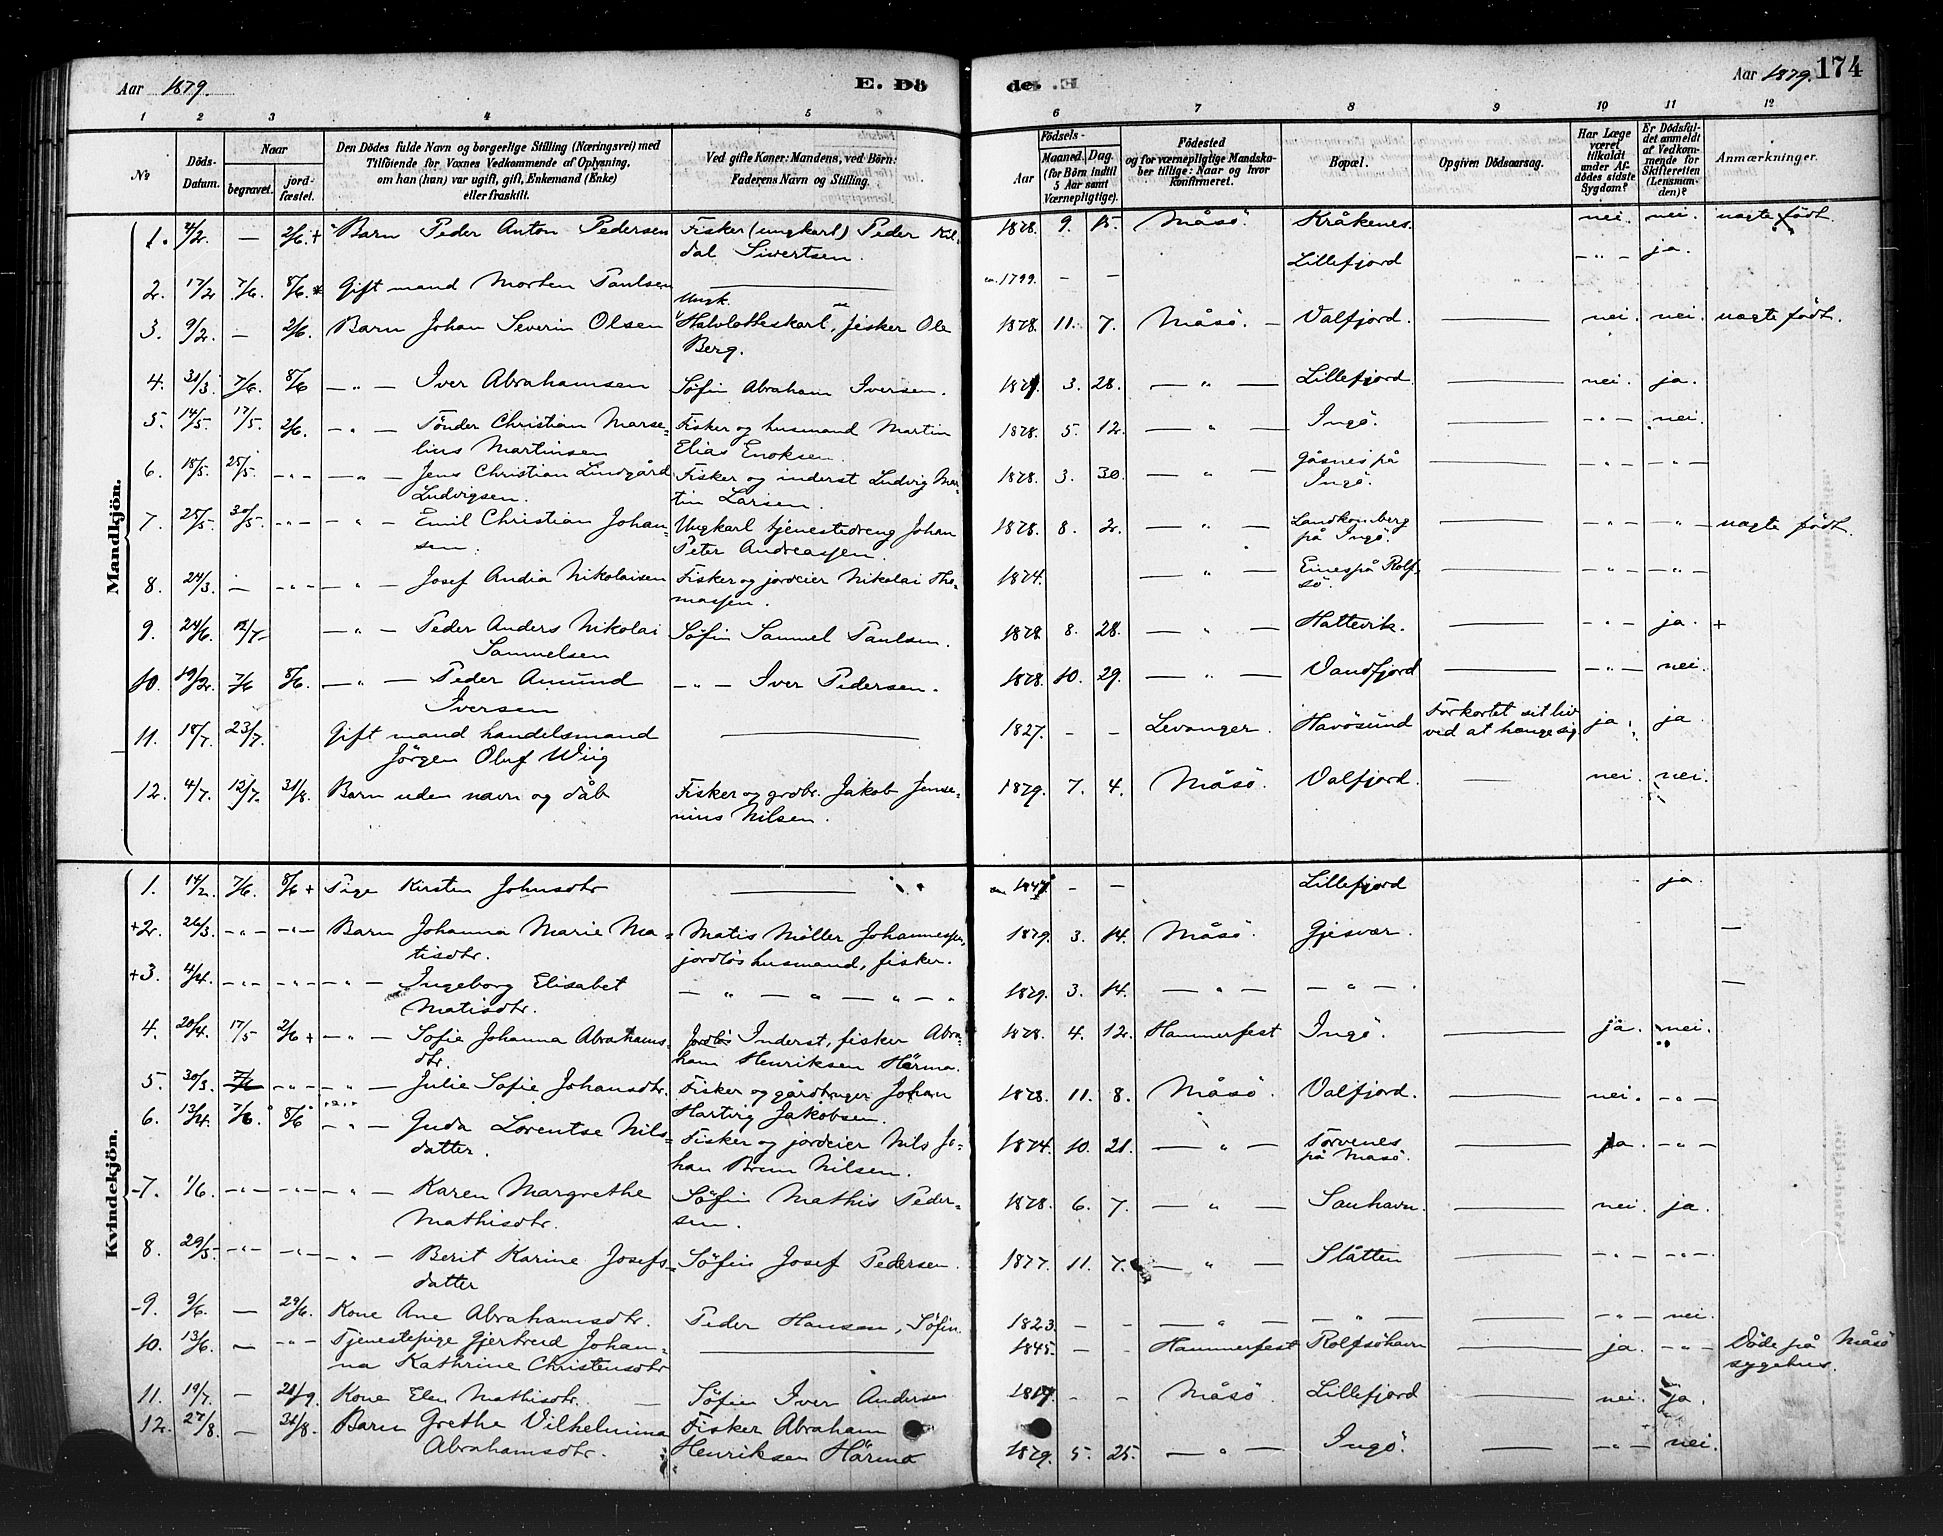 Aar 1879. E. Dö
de. Aar 1879. 174
1 2 3 4 5
6 7 8 9 10 11 12
No
Döds-Datum.
Naar
begravet.
jordfæstet.
Den Dödes fulde Navn og borgerlige Stilling (Næringsvei) med
Tilföiende for Voxnes Vedkommende af Oplysning,
om han (hun) var ugift, gift, Enkemand (Enke)
eller fraskilt.
Ved gifte Koner: Mandens, ved Börn:
Faderens Navn og Stilling.
Födsels-
Aar
Maaned. Dag.
(for Börn indtil
5 Aar samt
Værnepligtige).
Födested
og for værnepligtige Mandska-
ber tillige: Naar og hvor
konfirmeret.
Bopæl.
Opgiven Dödsaarsag.
Har Læge
været
tilkaldt
under Af-
dödes sidste
Sygdom?
Er Dödsfal-
det anmeldt
af Vedkom-
mende for
Skifteretten
(Lensman-
den)?
Anmærkninger.
Mandkjön.
1. 4/2. — 2/6. + Barn Peder Anton Pedersen Fisker (ungkarl) Peder Kil-
dal Sivertsen. 1878. 9. 15. Måsö. Kråkenes. nei. nei. uægte født.
2. 17/2 7/6. 8/6. * Gift mand Morten Paulsen — ca. 1799. — — Lillefjord — " — ja.
3. 9/2. — 2/6. Barn Johan Severin Olsen Ungk. Halvlotteskarl, fisker Ole
Berg. 1878. 11. 7. Måsö. — Valfjord. — nei. nei. uægte født.
4. 31/3 7/6. 8/6 — " — Iver Abrahamsen Søfin Abraham Iversen. 1879. 3. 28. — " — Lillefjord. — nei. ja.
5. 14/5. 17/5. 2/6. — " — Tönder Christian Marse-
lius Martinsen Fisker og husmand Martin
Elias Enoksen. 1878. 5. 12. — " — Ingö. — — " — nei.
6. 18/5. 25/5. — " — — " — Jens Christian Lindgård
Ludvigsen. Fisker og inderst Ludvig Mar-
tin Larsen. 1878. 3. 30. — " — Gåsnes på
Ingö. — — " — — " —
7. 25/5. 30/5. — " — — " — Emil Christian Johan-
sen. Ungkarl tjenestedreng Johan
Peter Andreassen. 1878. 8. 2. — " — på Ingö. — — " — — " — uægte født.
8. 24/3. — — " — — " — Josef Andia Nikolaisen Fisker og jordeier Nikolai Tho-
massen. 1874. — " — Eines på Rolf-
sö. — — " — — " —
9. 24/6. 12/7. — " — Peder Anders Nikolai
Samuelsen Søfin Samuel Paulsen. 1878. 8. 28. — " — Hattevik. — — " — ja. +
10. 19/2. 7/6 8/6. — " — Peder Amund
Iversen — " — Iver Pedersen. 1878. 10. 29. — " — Vandfjord — — " — nei.
11. 18/7. 23/7. Gift mand handelsmand
Jörgen Oluf Wiig — 1827. — — Levanger. Havösund Forkortet sit liv
ved at hænge sig. ja. ja.
12. 4/7. 12/7. 31/8. Barn uden navn og dåb Fisker og grdbr. Jakob Jense-
nius Nilsen. 1879. 7. 4. Måsö. Valfjord. — nei. nei.
Kvindekjön.
1. 14/2. 7/6. 8/6 + Pige Kirsten Johnsdtr — ca. 1847. — — Lillefjord ja.
+2. 26/3. — " — — " — Barn Johanna Marie Ma-
tisdtr. Matis Möller Johannessen,
jordløs husmand, fisker. 1879. 3. 14. Måsö. Gjesvær. —
+3. 4/4. — " — — " — — " — Ingeborg Elisabet
Matisdtr. — " — " — " — " 1879. 3. 14. — " — — " — . —
4. 20/4. 17/5 2/6 + — " — Sofie Johanna Abrahams-
dtr. Inderst, fisker Abra-
ham Henriksen Härma. 1878. 4. 12. Hammerfest Ingö. — ja. nei.
5. 30/3. 7/6 — " — — " — Julie Sofie Johansdtr. Fisker og gårdbruger Johan
Hartvig Jakobsen. 1878. 11. 8. Måsö. Valfjord. — nei. — " —
6. 13/4. 7/6. 8/6 — " — Guda Lorentse Nils-
datter. Fisker og jordeier Nils Jo-
han Brun Nilsen. 1874. 10. 21. — " — Torvenes
på Masö. — ja. — " —
-7. 1/6. — " — — " — — " — Karen Margrethe
Mathisdtr. Søfin Mathis Peder-
sen. 1878. 6. 7. — " — Sanhavn. — nei. ja.
8. 29/5. — " — — " — — " — Berit Karine Josefs-
datter Søfin Josef Pedersen. 1877. 11. 7. — " — Slåtten — — " — — " —
-9. 9/6. — 29/6. Kone Ane Abrahamsdtr. Peder Hansen, Søfin. 1823. — — — " — — " — — — " — nei.
10. 13/6. — — " — Tjenestepige Gjertrud Johan-
na Kathrine Christensdtr — 1845. — — Hammerfest Rolfsöhavn — ja. — " — Döde på Måsö
sygehus.
11. 19/7. — 21/9. Kone Elen Mathisdtr. — Søfin Iver Andersen 1817. — — Måsö. Lillefjord — nei. ja.
12. 27/8. — 31/8. Barn Grethe Vilhelmina
Abrahamsdtr. Fisker Abraham
Henriksen Härma 1879. 5. 25. — " — Ingö. — — " — nei.